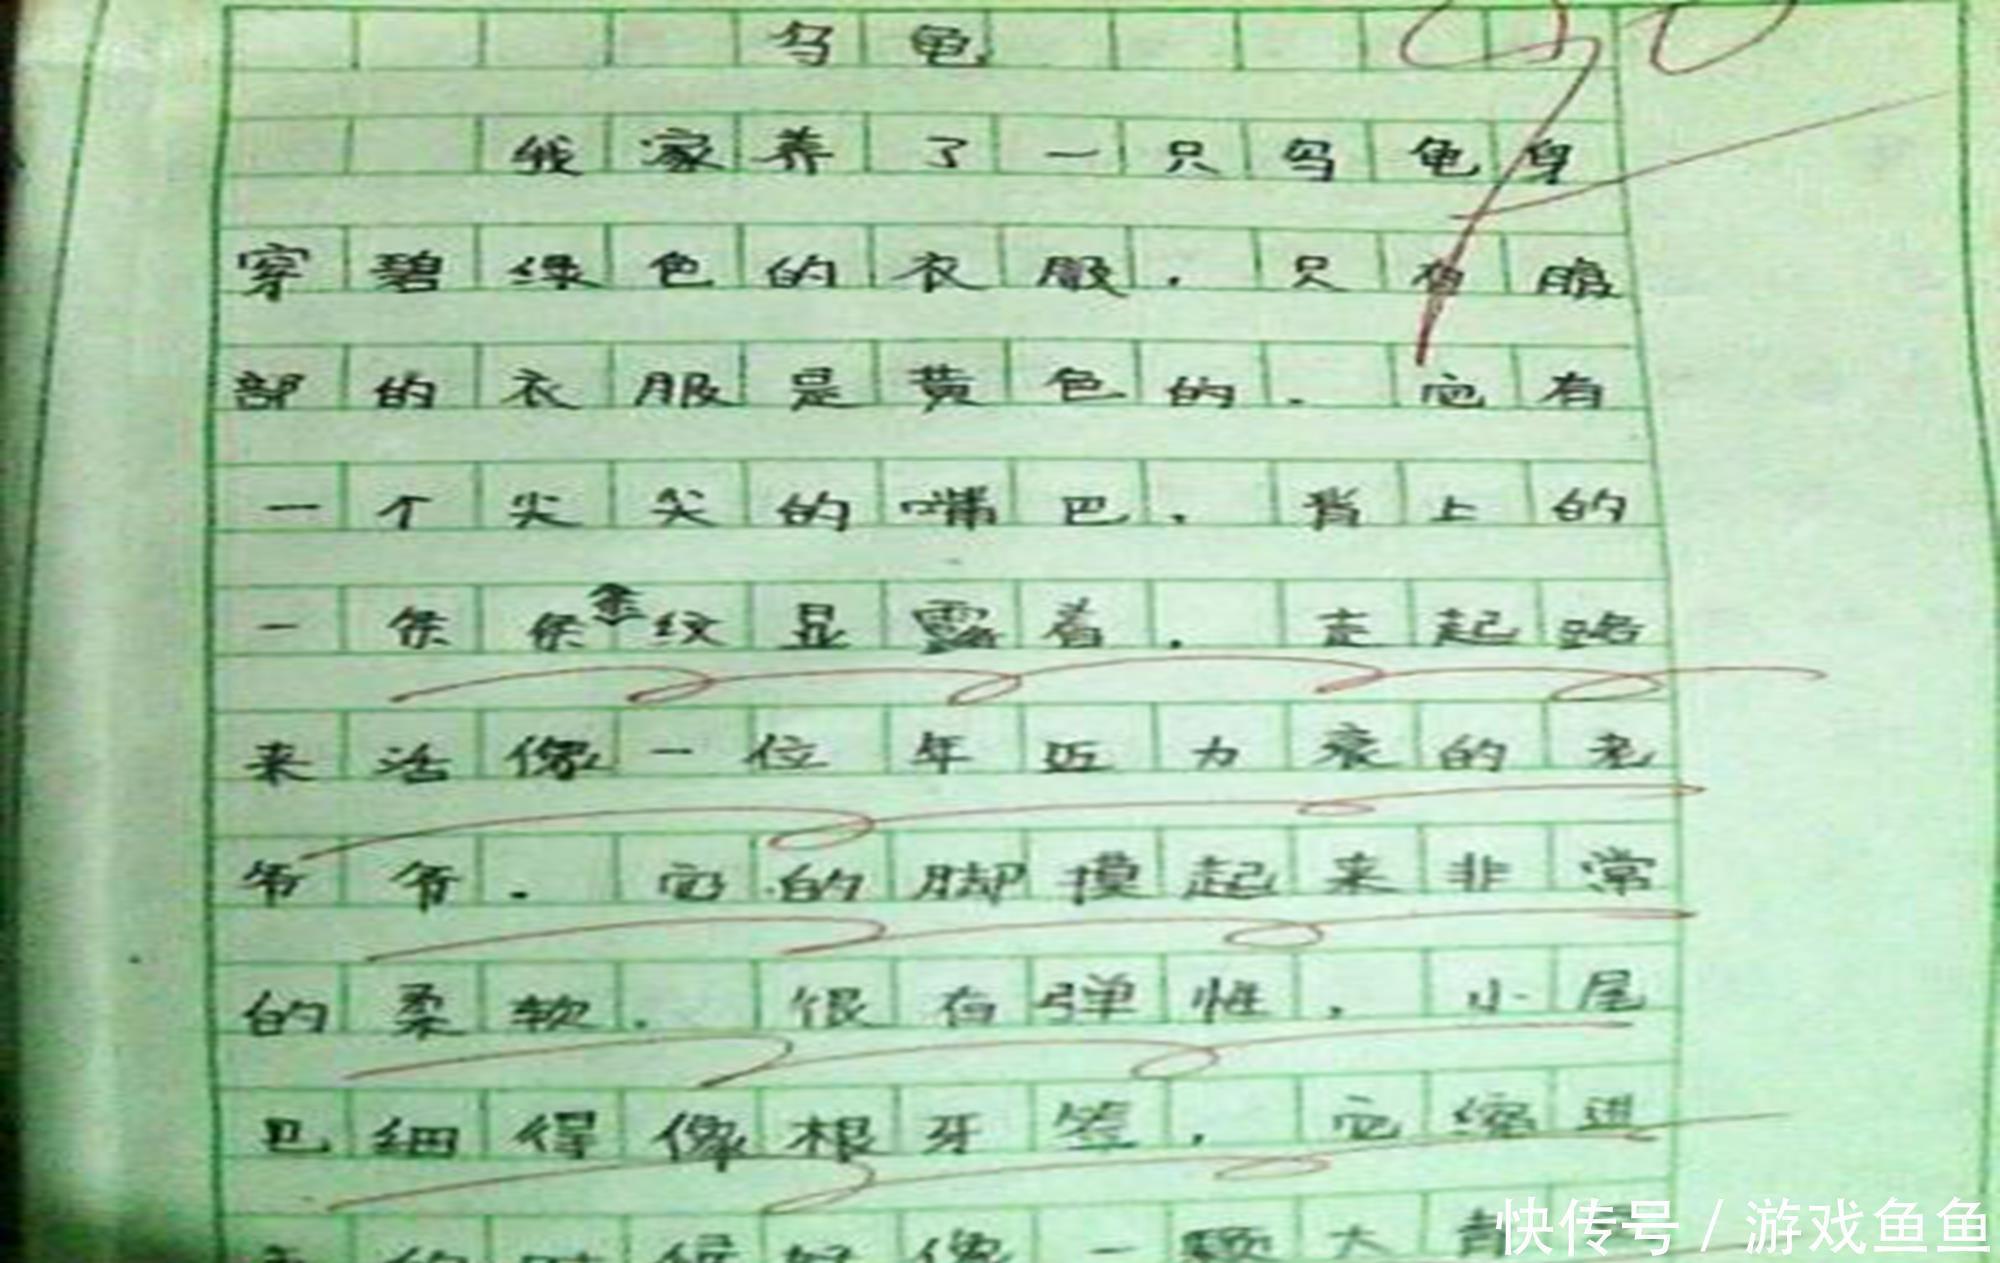 乌龟
我家养了一只乌龟身
穿碧绿色的衣服，只有腹
部的衣服是黄色的．它有
一个尖尖的嘴巴，背上的
一条条条纹显露着．走起路
来活像一位年迈力衰的老
爷爷．它的脚摸起来非常
的柔软．很有弹性，小尾
巴细得像根牙签，它缩进
的时候好像一颗大青
快传号／游戏鱼鱼